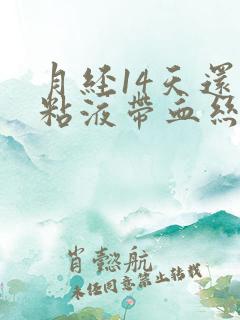 月经14天還
粘液带血丝
肖懿航
未经同意禁止转载